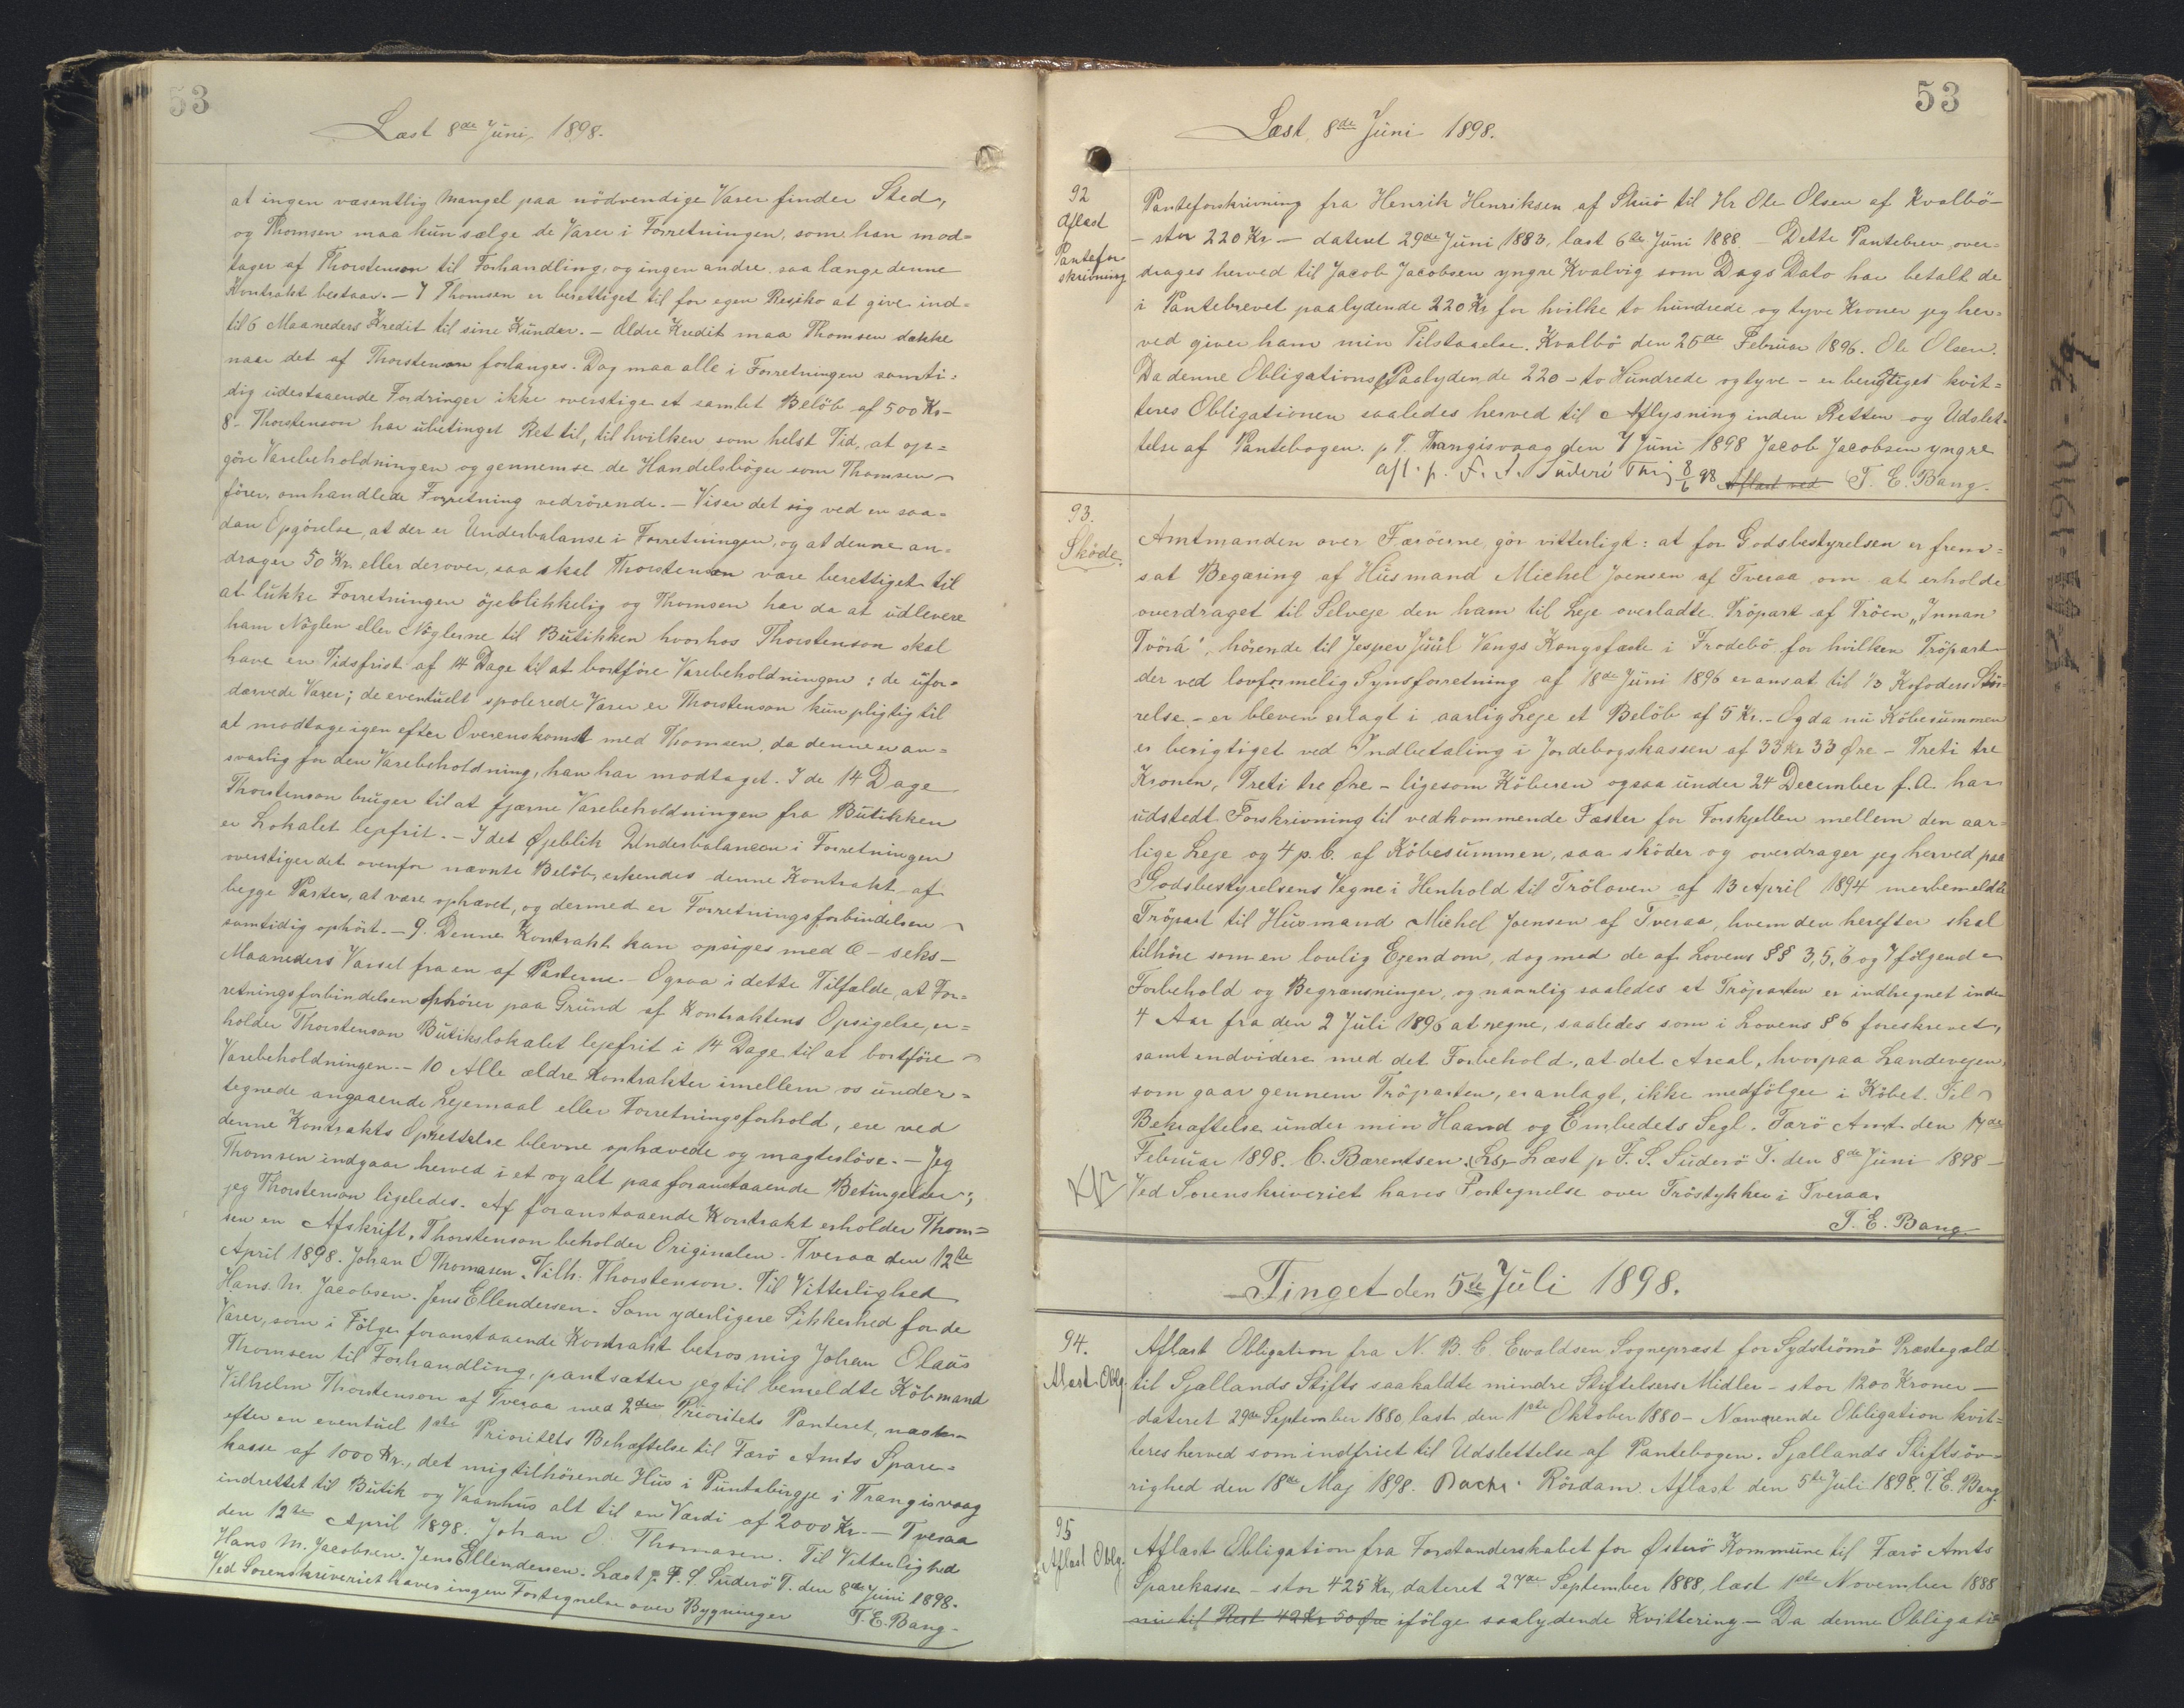 53
Læst 8de Juni 1898.
at ingen væsentlig Mangel paa nödvendige Varer finder Sted,
og Thomsen maa kun sælge de Varer i Forretningen, som han mod=
tager af Thorstenson til Forhandling, og ingen andre, saa længe denne
Kontrakt bestaar. — 7 Thomsen er berettiget til for egen Risiko at give ind=
til 6 Maaneders Kredit til sine Kunder. — Ældre Kredit maa Thomsen dække
naar det af Thorstenson forlanges. Dog maa alle i Forretningen samti=
dig udestaaende Fordringer ikke overstige et samlet Belöb af 500 Kr —
8. Thorstenson har ubetinget Ret til, til hvilken som helst Tid, at op=
göre Varebeholdningen og gennemse de Handelsböger som Thomsen
förer, omhandlede Forretning vedrörende. — Viser det sig ved en saa=
dan Opgörelse, at der er Underbalanse i Forretningen, og at denne an=
drager 50 Kr. eller derover, saa skal Thorstenson være berettiget til
at lukke Forretningen öjeblikkelig og Thomsen har da at udlevere
ham Nöglen eller Nöglerne til Butikken hvorhos Thorstenson skal
have en Tidsfrist af 14 Dage til at bortföre Varebeholdningen : de ufor=
dærvede Varer; de eventuelt spolerede Varer er Thorstenson kun pligtig til
at modtage igen efter Overenskomst med Thomsen, da denne er an=
svarlig for den Varebeholdning, han har modtaget. I de 14 Dage
Thorstenson bruger til at fjærne Varebeholdningen fra Butikken
er Lokalet lejefrit. — I det Øjeblik Underbalancen i Forretningen
overstiger det ovenfor nævnte Belöb, erkendes denne Kontrakt af
begge Parter, at være ophævet, og dermed er Forretningsforbindelsen
samtidig ophört. — 9. Denne Kontrakt kan opsiges med 6 — seks —
Maaneders Varsel fra en af Parterne. — Ogsaa i dette Tilfælde, at For=
retningsforbindelsen ophörer paa Grund af Kontraktens Opsigelse, er=
holder Thorstenson Butikslokalet lejefrit i 14 Dage til at bortföre
Varebeholdningen. — 10 Alle ældre Kontrakter imellem os under=
tegnede angaaende Lejemaal eller Forretningsforhold, ere ved
denne Kontrakts Oprettelse blevne ophævede og magteslöse. — Jeg
Thomsen indgaar herved i et og alt paa foranstaaende Betingelser;
jeg Thorstenson ligeledes. Af foranstaaende Kontrakt erholder Thom=
sen en Afskrift, Thorstenson beholder Originalen. Tveraa den 12te
April 1898. Johan O Thomasen. Vilh. Thorstenson. Til Vitterlighed
Hans M. Jacobsen. Jens Ellendersen. Som yderligere Sikkerhed for de
Varer, som i Fölge foranstaaende Kontrakt betros mig Johan Olaus
Thomsen til Forhandling, pantsætter jeg til bemeldte Köbmand
Vilhelm Thorstenson af Tveraa med 2den Prioritets Panteret, næst
efter en eventuel 1ste Prioritets Behæftelse til Færö Amts Spare=
kasse af 1000 Kr., det mig tilhörende Hus i Puntaburgje i Trangisvaag
indrettet til Butik og Vaanhus alt til en Værdi af 2000 Kr. — Tveraa
den 12te April 1898. Johan O. Thomasen. Til Vitterlighed
Hans M. Jacobsen. Jens Ellendersen. Læst p. F. S. Suderö T. den 8de Juni 1898.
Ved Sorenskriveriet haves ingen Fortegnelse over Bygninger T. E. Bang.
53
Læst, 8de Juni 1898.
92
Aflæst
Pantefor
skrivning
Panteforskrivning fra Henrik Henriksen af Skuö til Hr Ole Olsen af Kvalbö
— stor 220 Kr — dateret 29de Juni 1883, læst 6te Juni 1888. — Dette Pantebrev over=
drages herved til Jacob Jacobsen yngre Kvalvig som Dags Dato har betalt de
i Pantebrevet paalydende 220 Kr for hvilke to hundrede og tyve Kroner jeg her=
ved giver ham min Tilstaaelse. Kvalbö den 25de Februar 1896. Ole Olsen.
Da denne Obligations Paalydende 220 — to Hundrede og tyve — er berigtiget kvit=
teres Obligationen saaledes herved til Aflysning inden Retten og Udslet=
telse af Pantebogen. p. T. Trangisvaag den 7 Juni 1898 Jacob Jacobsen yngre
Afl. p. F. S. Suderö Thing 8/6 98 Aflæst ved T. E. Bang.
93.
Sköde.
Amtmanden over Færöerne gör vitterligt: at for Godsbestyrelsen er frem=
sat Begæring af Husmand Michel Joensen af Tveraa om at erholde
overdraget til Selveje den ham til Leje overladte Tröpart af Tröen „Innan
Tvörá", hörende til Jesper Juul Vangs Kongsfæste i Frodebö for hvilken Tröpart
der ved lovformelig Synsforretning af 18de Juni 1896 er ansat til 1/3 Kofoders Stör=
relse, — er bleven erlagt i aarlig Leje et Belöb af 5 Kr. — Og da nu Köbesummen
er berigtiget ved Indbetaling i Jordebogskassen af 33 Kr 33 Øre — Treti tre
Kroner, Treti tre Øre — ligesom Köberen ogsaa under 24 December f. A. har
udstedt Forskrivning til vedkommende Fæster for Forskjellen mellem den aar=
lige Leje og 4 p. C. af Köbesummen, saa sköder og overdrager jeg herved paa
Godsbestyrelsens Vegne i Henhold til Tröloven af 13 April 1894 merbemeldte
Tröpart til Husmand Michel Joensen af Tveraa, hvem den herefter skal
tilhöre som en lovlig Ejendom, dog med de af Lovens §§ 3, 5, 6 og 7 fölgende
Forbehold og Begrænsninger, og navnlig saaledes at Tröparten er indhegnet inden
4 Aar fra den 2 Juli 1896 at regne, saaledes som i Lovens § 6 foreskrevet,
samt endvidere med det Forbehold, at det Areal, hvorpaa Landevejen,
som gaar gennem Tröparten, er anlagt, ikke medfölger i Köbet. Til
Bekræftelse under min Haand og Embedets Segl. Færö Amt den 17de
Februar 1898. C. Bærentsen. (L.s.) Læst p F. S. Suderö T. den 8de Juni 1898 —
Ved Sorenskriveriet haves Fortegnelse over Tröstykker i Tveraa.
T. E. Bang
Tinget den 5te Juli 1898.
94.
Aflæst Oblg.
Aflæst Obligation fra N. B. C. Ewaldsen, Sognepræst for Sydströmö Præstegæld
til Sjællands Stifts saakaldte mindre Stiftelsers Midler — stor 1200 Kroner —
dateret 29de September 1880, læst den 1ste Oktober 1880 — Nærværende Obligation kvit=
teres herved som indfriet til Udslettelse af Pantebogen. Sjællands Stiftsöv=
righed den 18de Maj 1898. Dachs. Rördam. Aflæst den 5te Juli 1898. T. E. Bang.
95
Aflæst Oblg.
Aflæst Obligation fra Forstanderskabet for Østerö Kommune til Færö Amts
Sparekasse — stor 425 Kr, dateret 27de September 1888, læst 1ste November 1888
nu til Rest 42 Kr 50 Øre ifölge saalydende Kvittering — Da denne Obligati